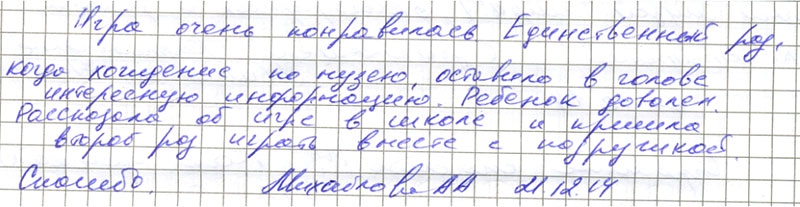 Игра очень понравилась Единственный раз,
когда хождение по музею, оставило в голове
интересную информацию. Ребенок доволен.
Рассказала об игре в школе и пришла
второй раз играть вместе с подружкой.
Спасибо. Михайлова АА 21.12.14